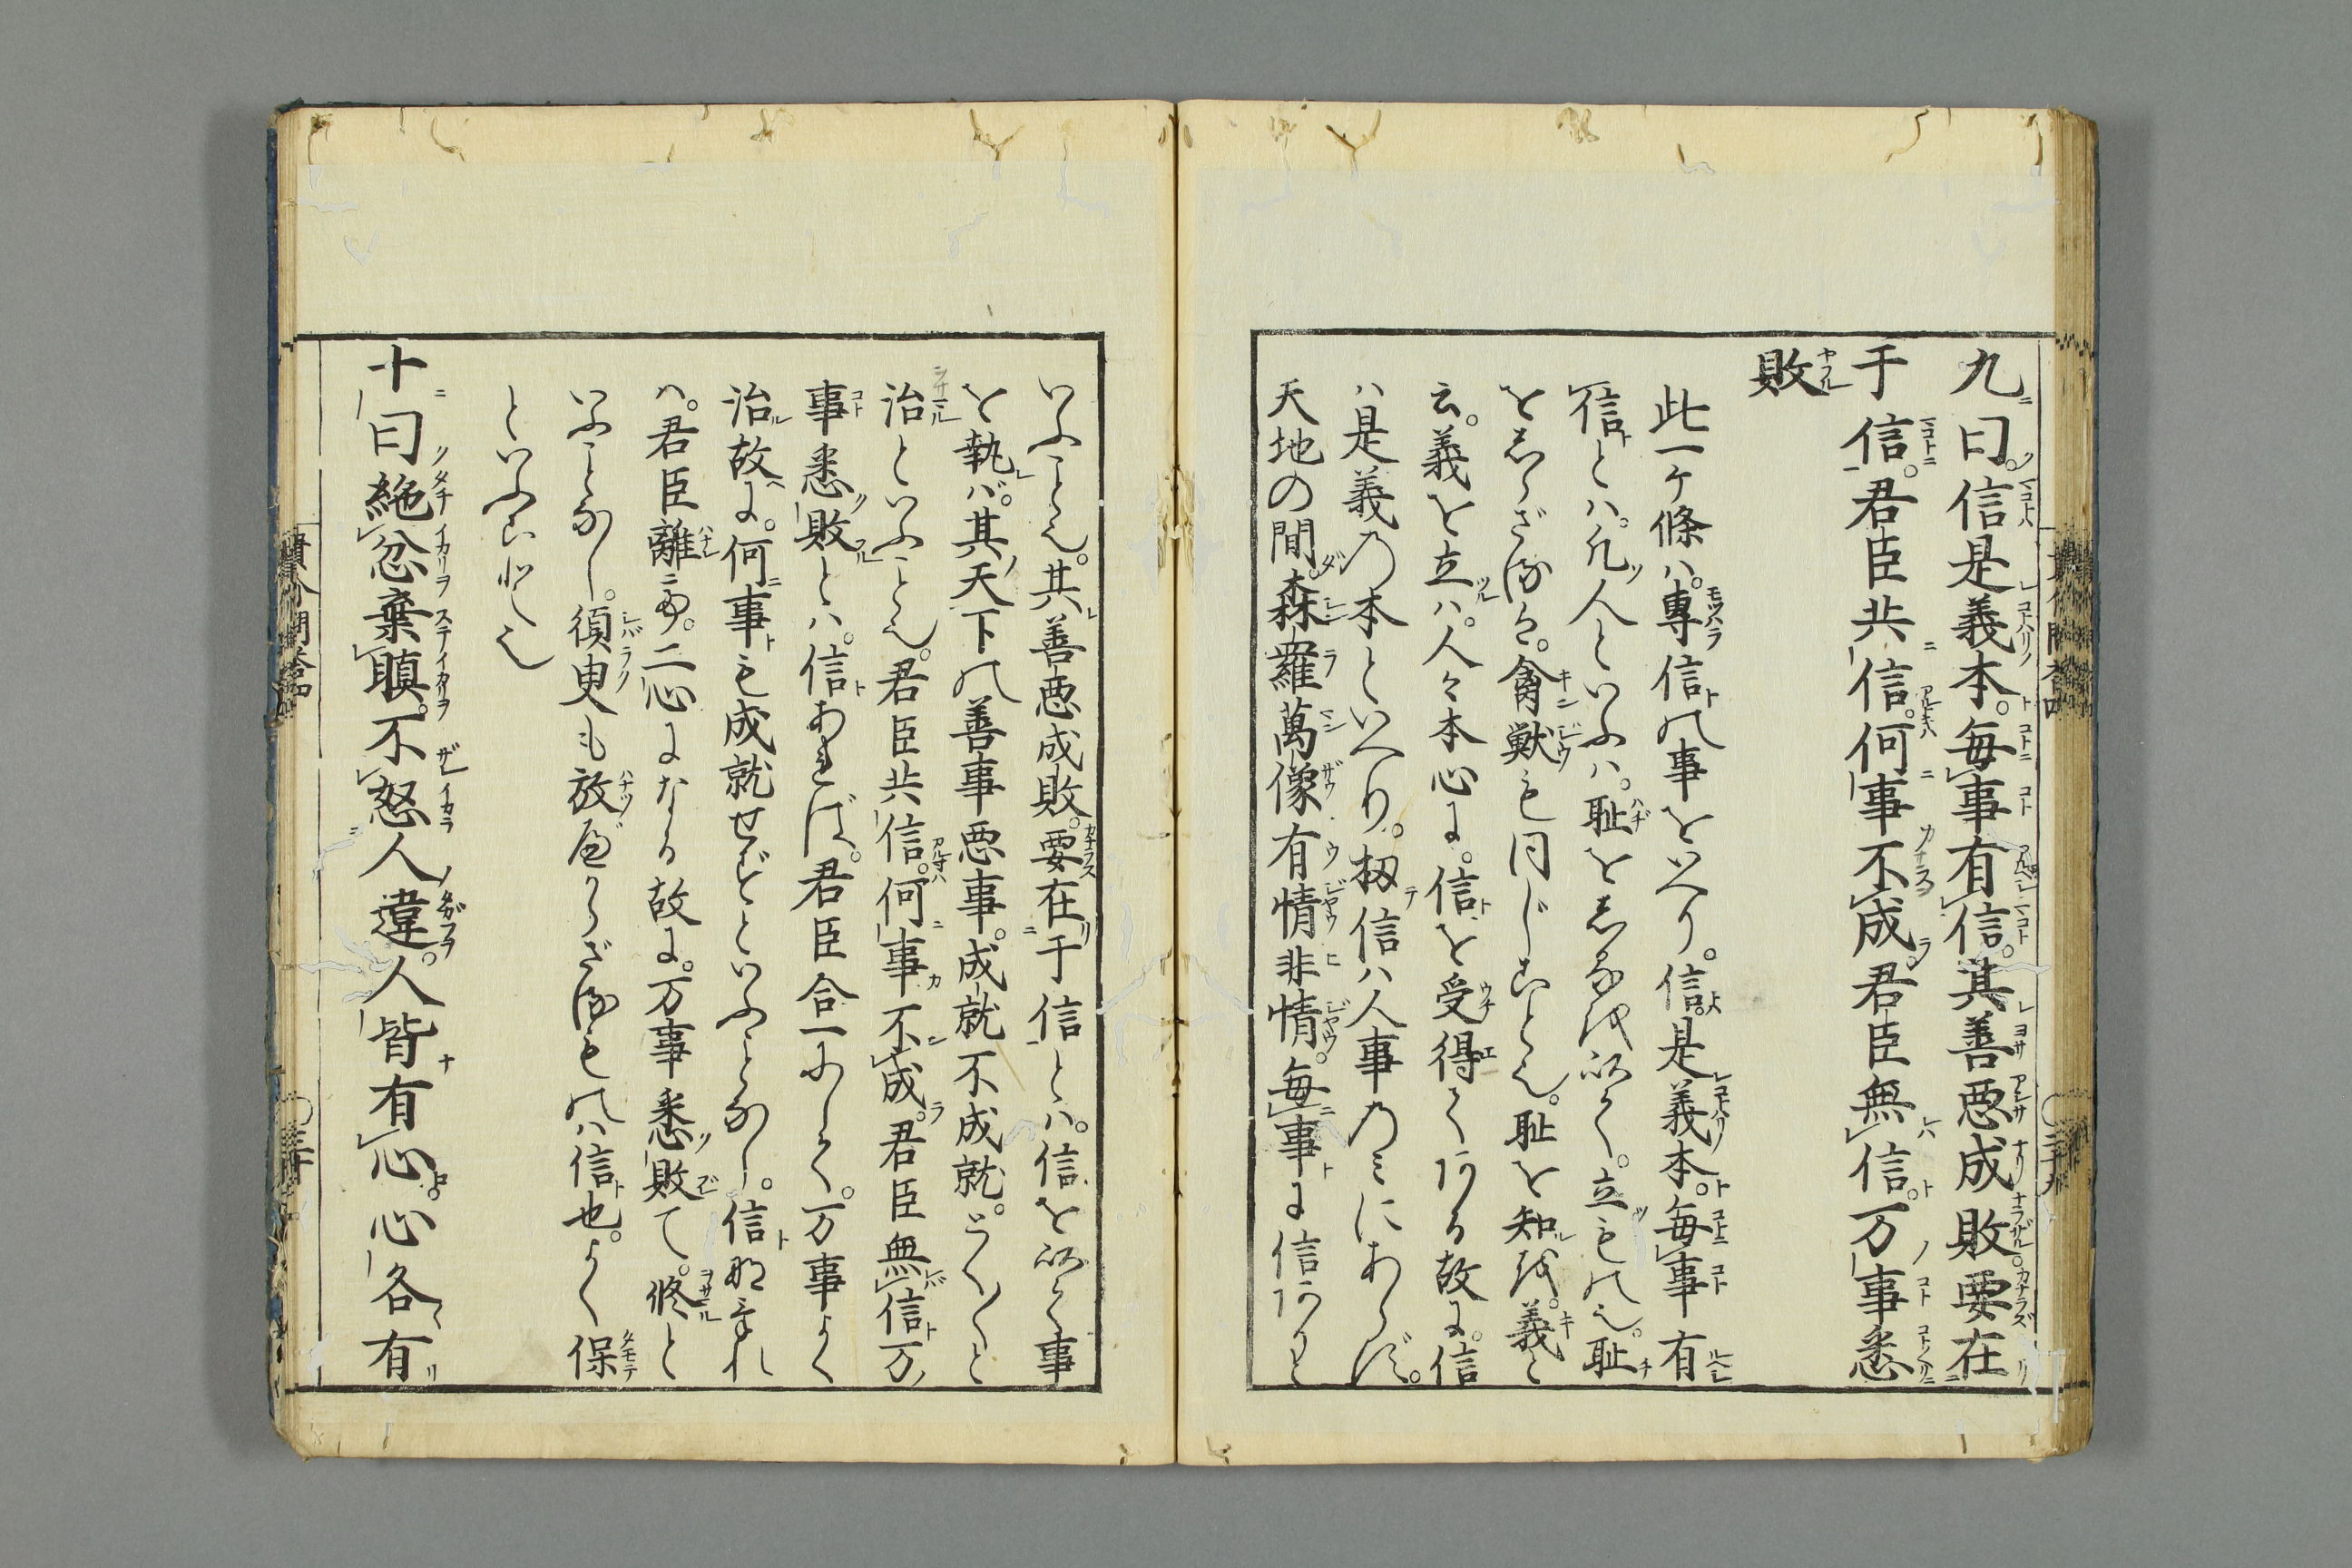 九曰。信是義本。毎事有信。其善悪成敗。要在
于信。君臣共信。何事不成。君臣無信。万事悉
敗
此一ケ條ハ。專信の事をいへり。信。是義本。毎事有
信とハ。凡人といふハ。耻をしるを以て。立もの也。耻
をしらざれば。禽獣も同じ事也。耻を知を。義と
云。義を立ハ。人々本心に。信を受得てある故に。信
ハ是義の本といへり。扨信ハ人事のミにあらず。
天地の間。森羅萬像有情非情。毎事に信ありと
いふこと也。其善悪成敗。要在于信とハ。信を以て事
を執バ。其天下の善事悪事。成就不成就。ことごとく
治といふこと也。君臣共信。何事不成。君臣無信万
事悉敗とハ。信あれば。君臣合一にして。万事よく
治故に。何事も成就せずといふことなし。信なければ
ハ。君臣離々。二心になる故に。万事悉敗て。終と
いふことなし。須臾も放べからざるものハ信也。よく保
といふこと也
十曰絶忿棄瞋。不怒人違。人皆有心。心各有